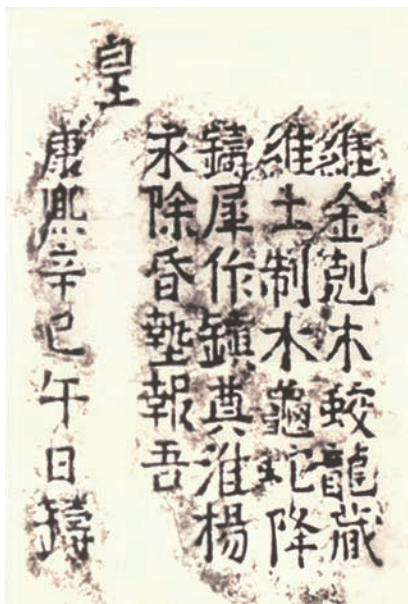 維金剋木蛟龍藏
維土制水龜蛇降
鑄犀作鎮奠淮楊
永除昏墊報吾
皇
康熙辛巳午日鑄